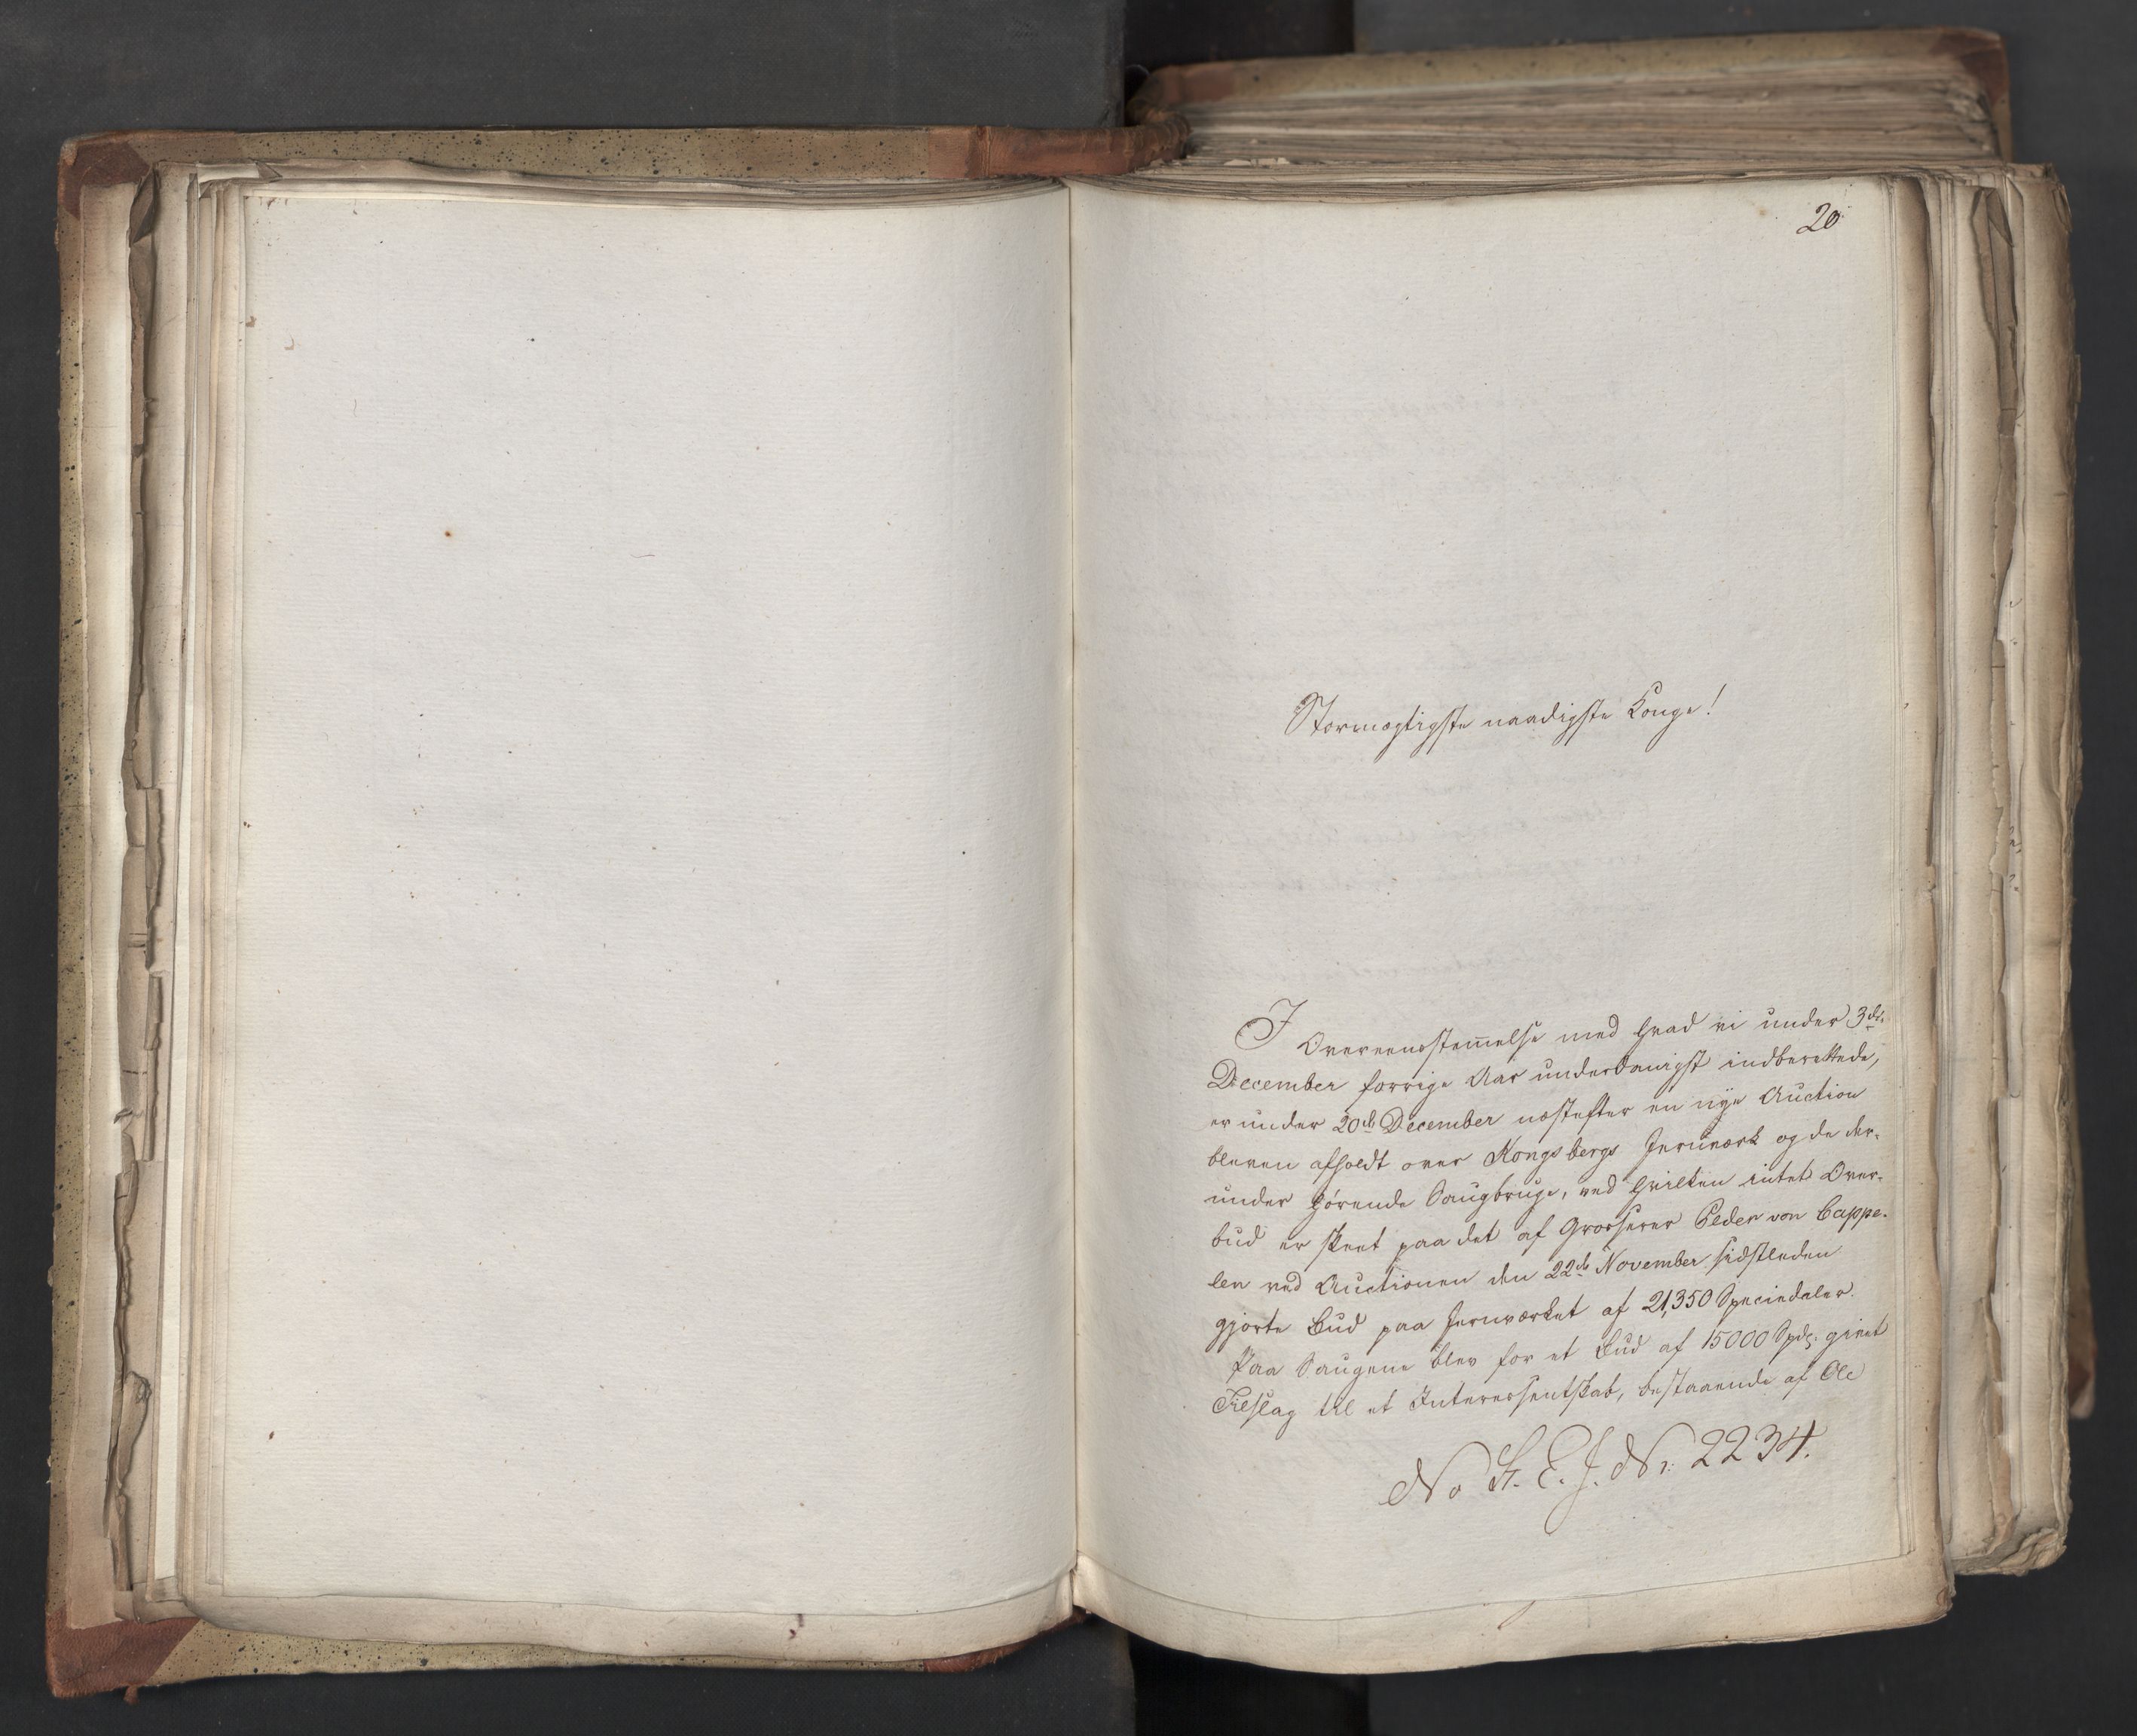 20
Stormægtigste naadigste Konge!
I Overeensstem̅else med hvad vi under 3de
December forrige Aar underdanigst indberettede,
er under 20de December næstefter en nye Auction
bleven afholdt over Kongsbergs Jernværk og de der-
under hørende Saugbruge, ved hvilken intet Over-
bud er skeet paa det af Grosserer Peder von Cappe-
len ved Auctionen den 22de November sidstleden
gjorte Bud paa Jernværket af 21,350 Speciedaler.
Paa Saugene blev for et Bud af 15000 Spdlr. givet
Tilslag til et Interessentskab, bestaaende af Ole
No. 2234.